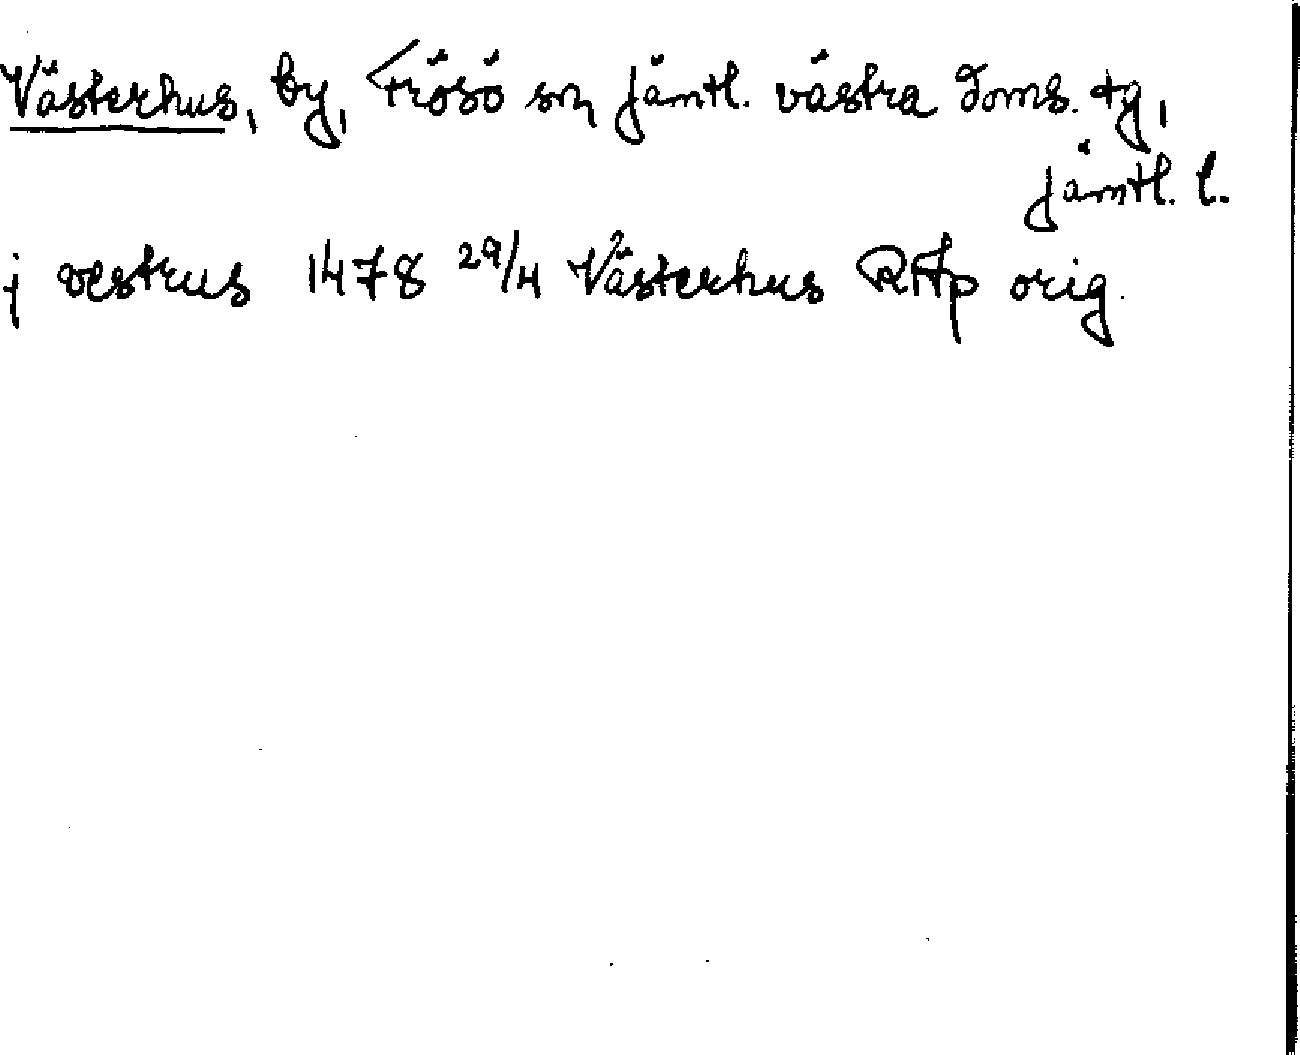 Västerhus, by, Frösö sn, Jämtl. västra doms. tg,
Jämtl. l.
j vestrus 1478 29/4 Västerhus RAp orig.